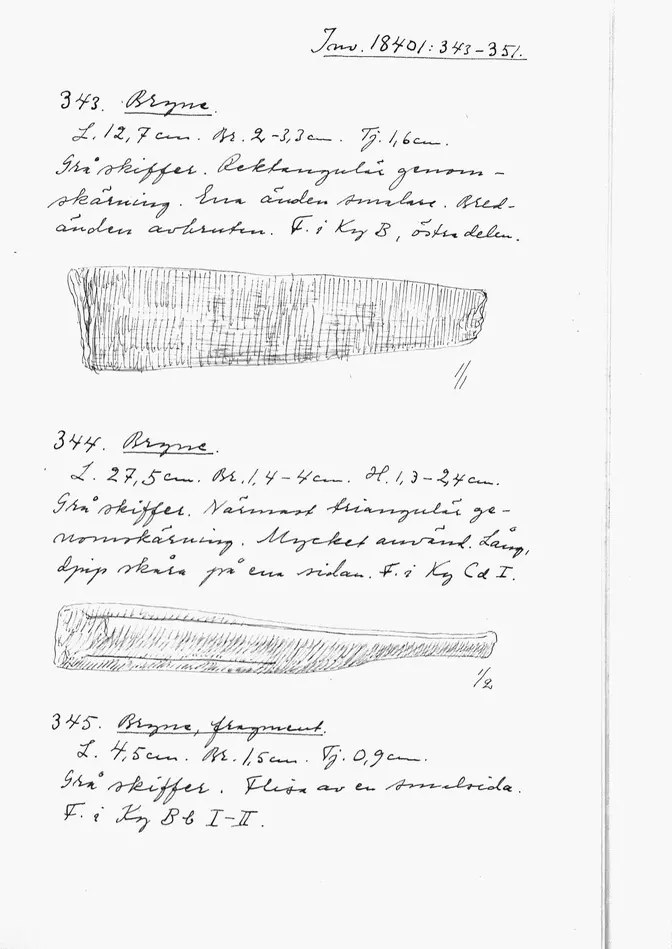 Inv. 18401:343-351.
343. Bryne.
L. 12,7 cm. Br. 2-3,3 cm. Tj. 1,6 cm.
Grå skiffer. Rektangulär genom-
skärning. Ena änden smalare. Bred-
änden avbruten. F. i Ky B, östra delen.
1/1
344. Bryne.
L. 27,5 cm. Br. 1,4-4 cm. H. 1,3-2,4 cm.
Grå skiffer. Närmast triangulär ge-
nomskärning. Mycket använd. Lång,
djup skåra på ena sidan. F. i Ky Cd I.
1/2
345. Bryne, fragment.
L. 4,5 cm. Br. 1,5 cm. Tj. 0,9 cm.
Grå skiffer. Flisa av en smalsida.
F. i Ky Bb I-II.